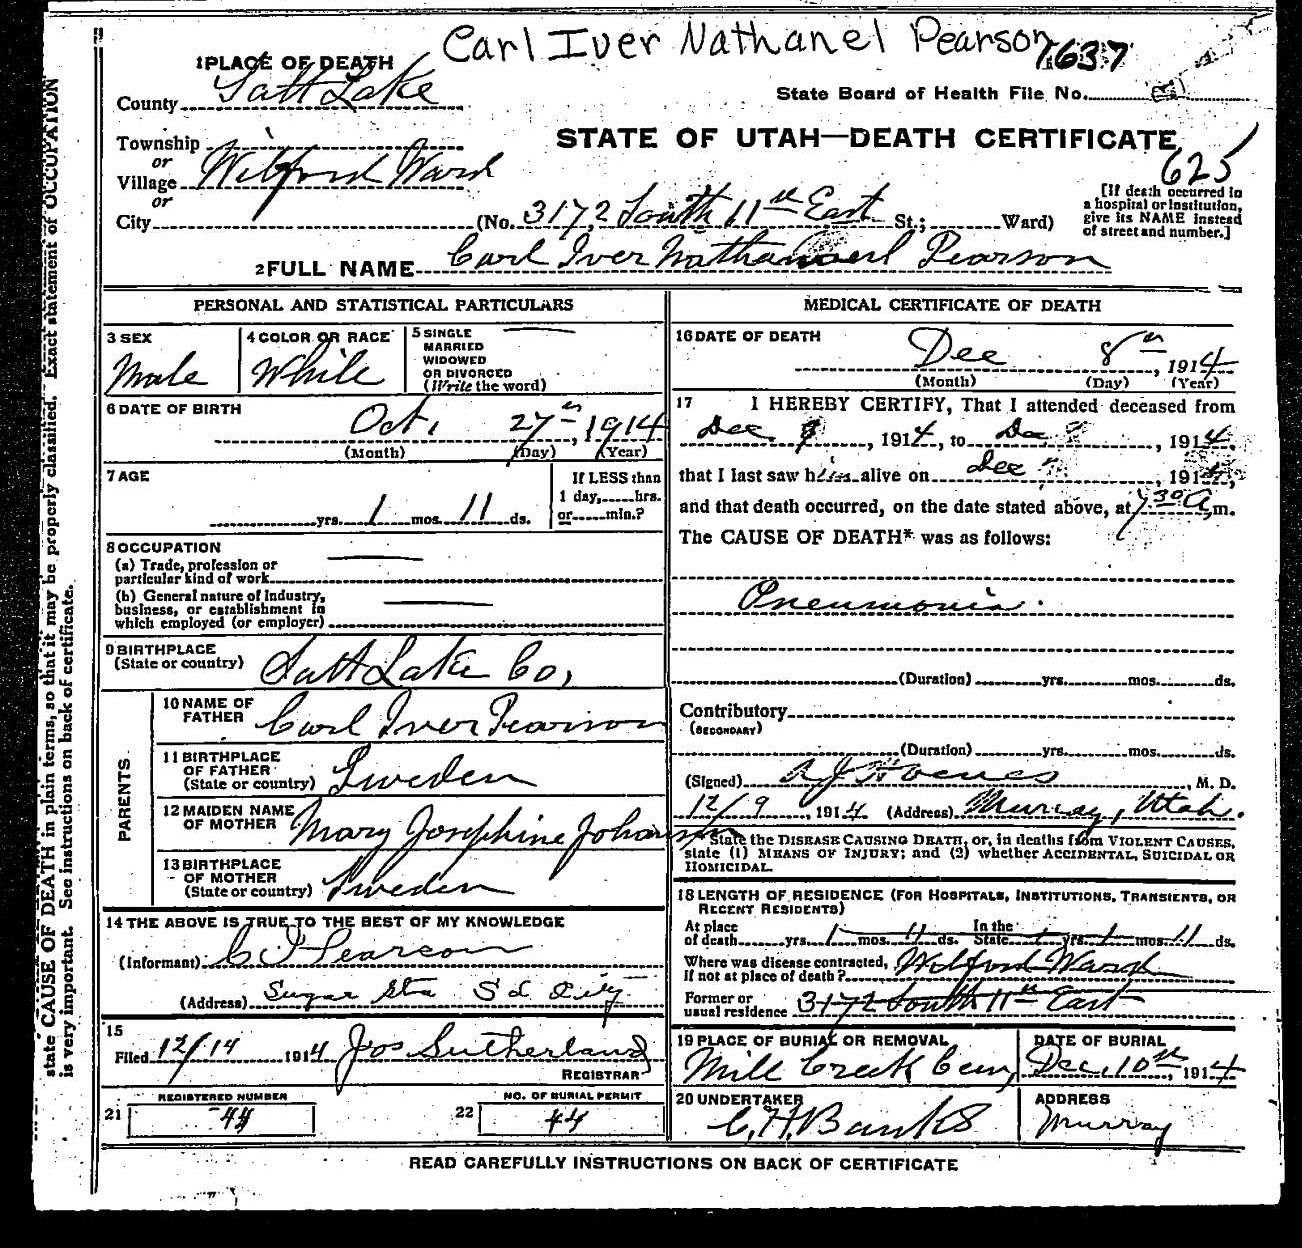 Carl Iver Nathanel Pearson
1637
1 PLACE OF DEATH
County Salt Lake
State Board of Health File No.
Township
or
Village Wilford Ward
or
City
STATE OF UTAH—DEATH CERTIFICATE
625
[If death occurred in a hospital or institution, give its NAME instead of street and number.]
(No. 3172 South 11th East St.; Ward)
2 FULL NAME Carl Iver Nathanael Pearson
PERSONAL AND STATISTICAL PARTICULARS
3 SEX
Male
4 COLOR OR RACE
White
5 SINGLE
MARRIED
WIDOWED
OR DIVORCED
(Write the word)
6 DATE OF BIRTH
Oct. 27th, 1914
(Month) (Day) (Year)
7 AGE
yrs. 1 mos. 11 ds.
If LESS than
1 day, hrs.
or min.?
8 OCCUPATION
(a) Trade, profession or
particular kind of work
(b) General nature of Industry,
business, or establishment in
which employed (or employer)
9 BIRTHPLACE
(State or country) Salt Lake Co,
PARENTS
10 NAME OF
FATHER Carl Iver Pearson
11 BIRTHPLACE
OF FATHER
(State or country) Sweden
12 MAIDEN NAME
OF MOTHER Mary Josephine Johanson
13 BIRTHPLACE
OF MOTHER
(State or country) Sweden
14 THE ABOVE IS TRUE TO THE BEST OF MY KNOWLEDGE
(Informant) C I Pearson
(Address) Sugar Sta S L City
15
Filed 12/14 1914 Jos Sutherland
REGISTRAR
REGISTERED NUMBER
21 44
NO. OF BURIAL PERMIT
22 44
MEDICAL CERTIFICATE OF DEATH
16 DATE OF DEATH
Dec 8th, 1914
(Month) (Day) (Year)
17 I HEREBY CERTIFY, That I attended deceased from
Dec., 1914, to Dec, 1914,
that I last saw him alive on Dec 1914,
and that death occurred, on the date stated above, at 7 30 A.m.
The CAUSE OF DEATH* was as follows:
Pneumonia.
(Duration) yrs. mos. ds.
Contributory
(SECONDARY)
(Duration) yrs. mos. ds.
(Signed) M. D.
12/9, 1914 (Address) Murray, Utah.
* State the DISEASE CAUSING DEATH, or, in deaths from VIOLENT CAUSES,
state (1) MEANS OF INJURY; and (2) whether ACCIDENTAL, SUICIDAL OR
HOMICIDAL.
18 LENGTH OF RESIDENCE (FOR HOSPITALS, INSTITUTIONS, TRANSIENTS, OR
RECENT RESIDENTS)
At place In the
of death yrs. 1 mos. 11 ds. State yrs. 1 mos. 11 ds.
Where was disease contracted,
if not at place of death? Wilford Ward
Former or
usual residence 3172 South 11th East
19 PLACE OF BURIAL OR REMOVAL
Mill Creek Cem,
DATE OF BURIAL
Dec. 10th, 1914
20 UNDERTAKER
C. H. Banks
ADDRESS
Murray
READ CAREFULLY INSTRUCTIONS ON BACK OF CERTIFICATE
state CAUSE OF DEATH in plain terms, so that it may be properly classified. Exact statement of OCCUPATION
is very important. See instructions on back of certificate.